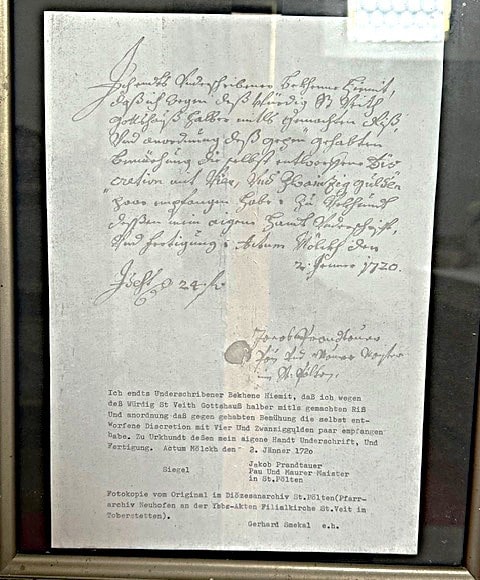 Ich endts Underschribener Bekhene Hiemit,
daß ich wegen deß Würdig St Veith
Gottshauß halber mitls gemachten Riß,
Und anordnung deß gegen gehabten
Bemühung die selbst entworffene Dis-
cretion mit Vier, Und Zwainzig gulden
paar empfangen habe. Zu Urkhundt
deßsen mein aigene Handt Underschrifft,
Und Fertigung. Actum Mölckh den
2. Jenner 1720.
24 f
Jacob Prandtauer
Pau Und Maurer Maister
in St. Pölten.
Ich endts Underschribener Bekhene Hiemit, daß ich wegen
deß Würdig St Veith Gottshauß halber mitls gemachten Riß
Und anordnung daß gegen gehabten Bemühung die selbst ent-
worfene Discretion mit Vier Und Zwanziggulden paar empfangen
habe. Zu Urkundt deßen mein eigene Handt Underschrift, Und
Fertigung. Actum Mölckh den 2. Jänner 1720
Siegel Jakob Prandtauer
Pau Und Maurer Maister
in St.Pölten
Fotokopie vom Original im Diözesanarchiv St.Pölten(Pfarr-
archiv Neuhofen an der Ybbs-Akten Filialkirche St.Veit im
Toberstetten).
Gerhard Smekal e.h.